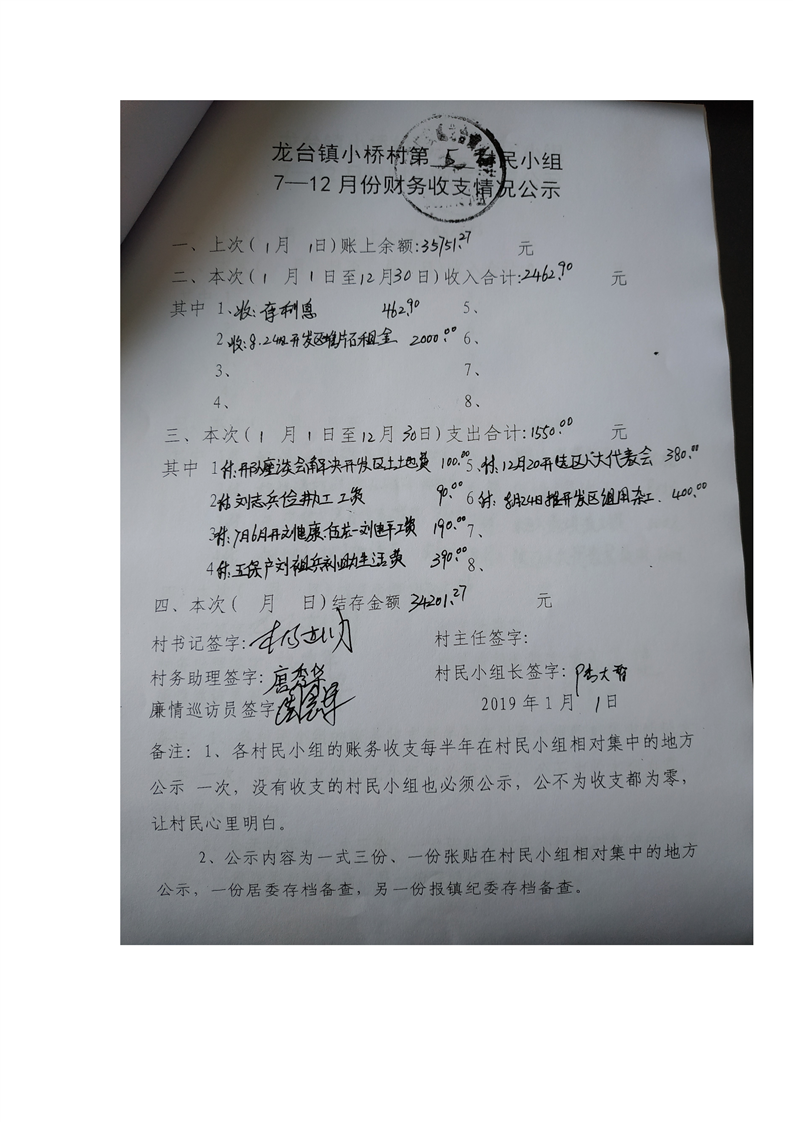 龙台镇小桥村第 5 村民小组
7—12月份财务收支情况公示
一、上次( 1月 1日)账上余额:35751.27 元
二、本次( 1 月 1 日至12月30日)收入合计:2462.90 元
其中 1、收:存利息 462.90 5、
2 收:8.24 开发区 租金 2000.00 6、
3、 7、
4、 8、
三、本次( 1 月 1 日至12月 30日)支出合计:1550.00 元
其中 1 付:开 座谈会 解决开发区土地费 100.00 5、付:12月20开 区人大代表会 380.00
2 付 刘志兵 工资 90.00 6 付: 8月24日 开发区组用杂工. 400.00
3 付:7月6月开 工资 190.00 7、
4 付:五保户刘祖兵 生活费 390.00 8、
四、本次( 月 日)结存金额 34201.27 元
村书记签字: 村主任签字:
村务助理签字: 村民小组长签字:
廉情巡访员签字 2019 年 1 月 1日
备注: 1、各村民小组的账务收支每半年在村民小组相对集中的地方
公示 一次，没有收支的村民小组也必须公示，公不为收支都为零，
让村民心里明白。
2、公示内容为一式三份、一份张贴在村民小组相对集中的地方
公示，一份居委存档备查，另一份报镇纪委存档备查。